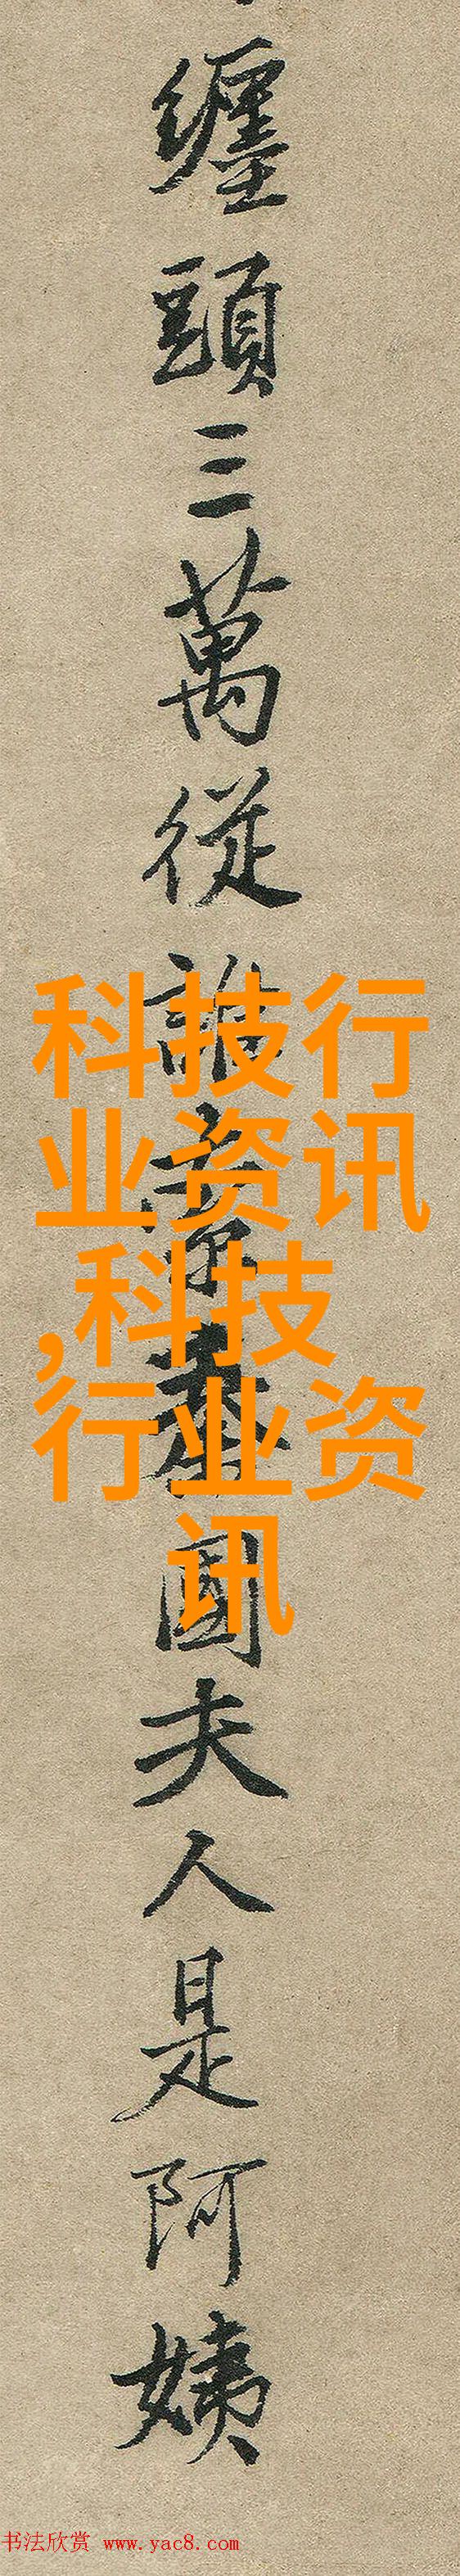 纏頭三萬從誰索秦國夫人是阿姨
科技行
业资讯
,科技
行业资
讯
书法欣赏 www.yac8.com